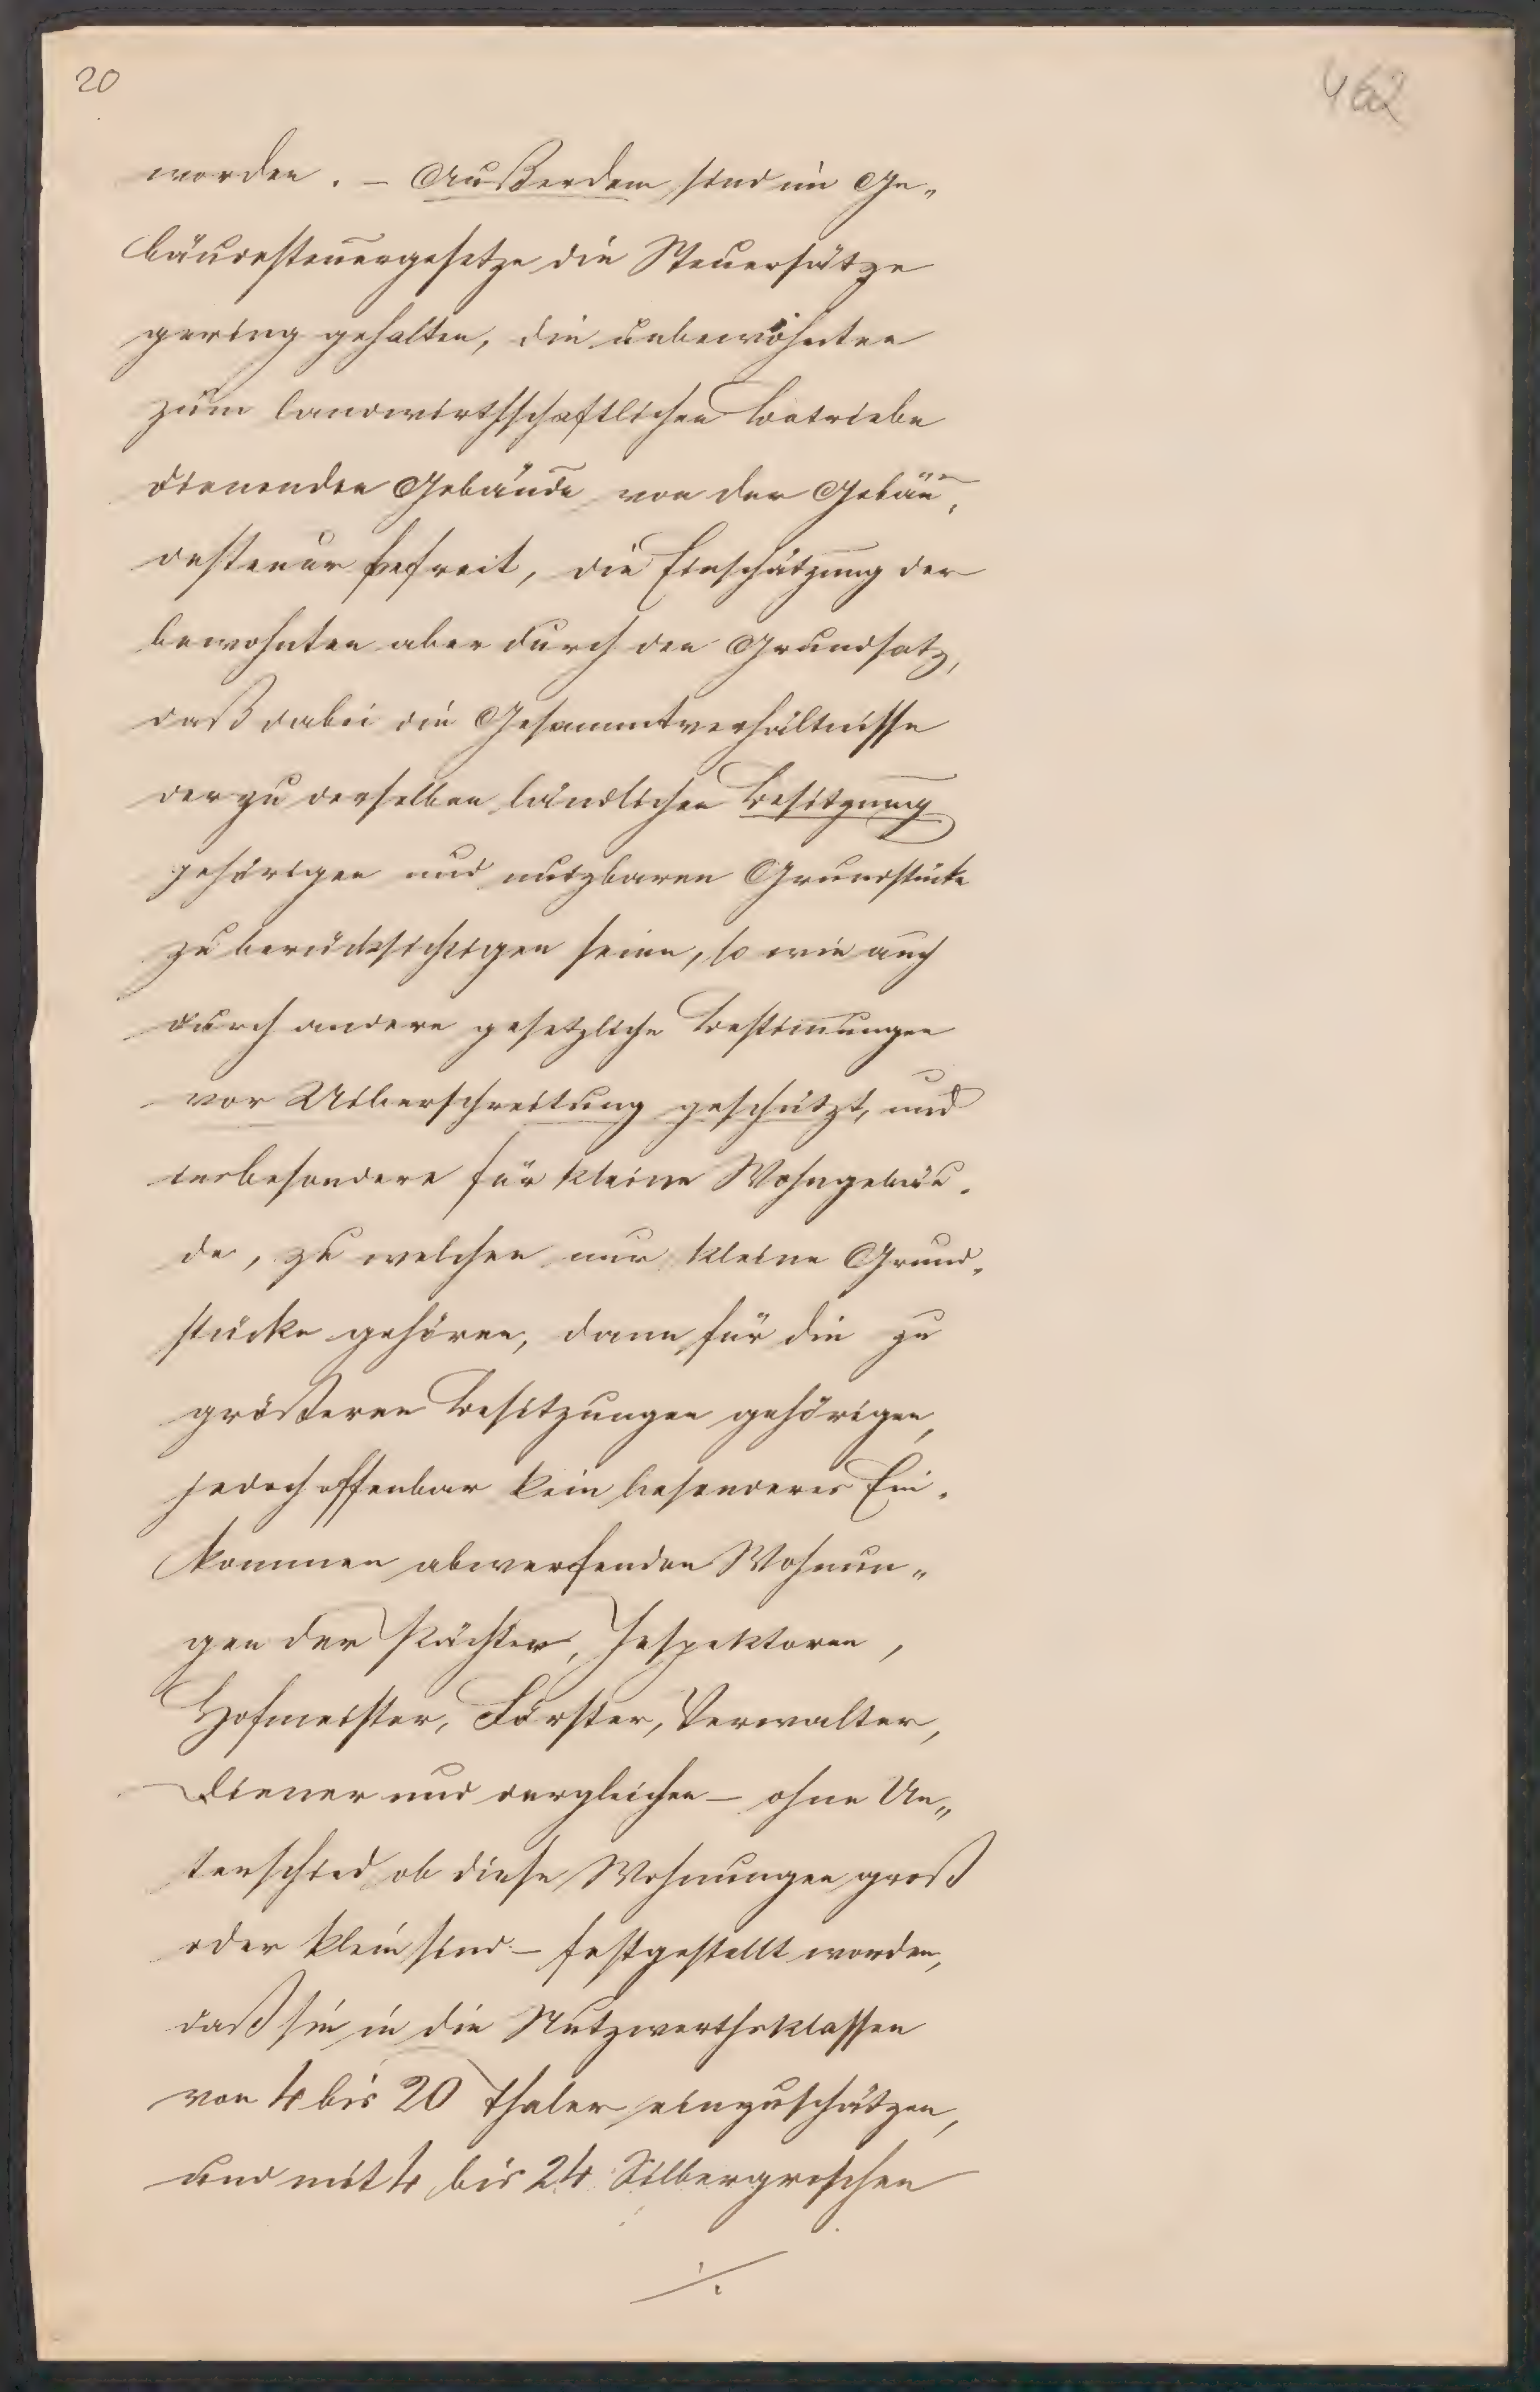 20
462
worden. – Außerdem sind im Ge„
bäudesteuergesetze die Steuersätze
gering gehalten, die unbewohnten
zum landwirthschaftlichen Betriebe
dienenden Gebäude von der Gebäu„
desteuer befreit, die Einschätzung der
bewohnten aber durch den Grundsatz,
daß dabei die Gesammtverhältnisse
der zu derselben ländlichen Besitzung
gehörigen und nutzbaren Grundstücke
zu berücksichtigen seien, so wie auch
durch andere gesetzliche Bestimungen
vor Uiberschreitung geschützt, und
insbesondere für kleine Wohngebäu„
de, zu welchen nur kleine Grund„
stücke gehören, dann für die zu
größeren Besitzungen gehörigen,
jedoch offenbar kein besonderes Ein„
kommen abwerfenden Wohnun„
gen der Pächter, Inspektoren,
Hofmeister, Förster, Verwalter,
Diener und dergleichen – ohne Un„
terschied ob diese Wohnungen groß
oder klein sind – festgestellt worden,
daß sie in die Nutzwerthsklassen
von 4 bis 20 Thaler einzuschätzen,
und mit 4 bis 24 Silbergroschen
./.